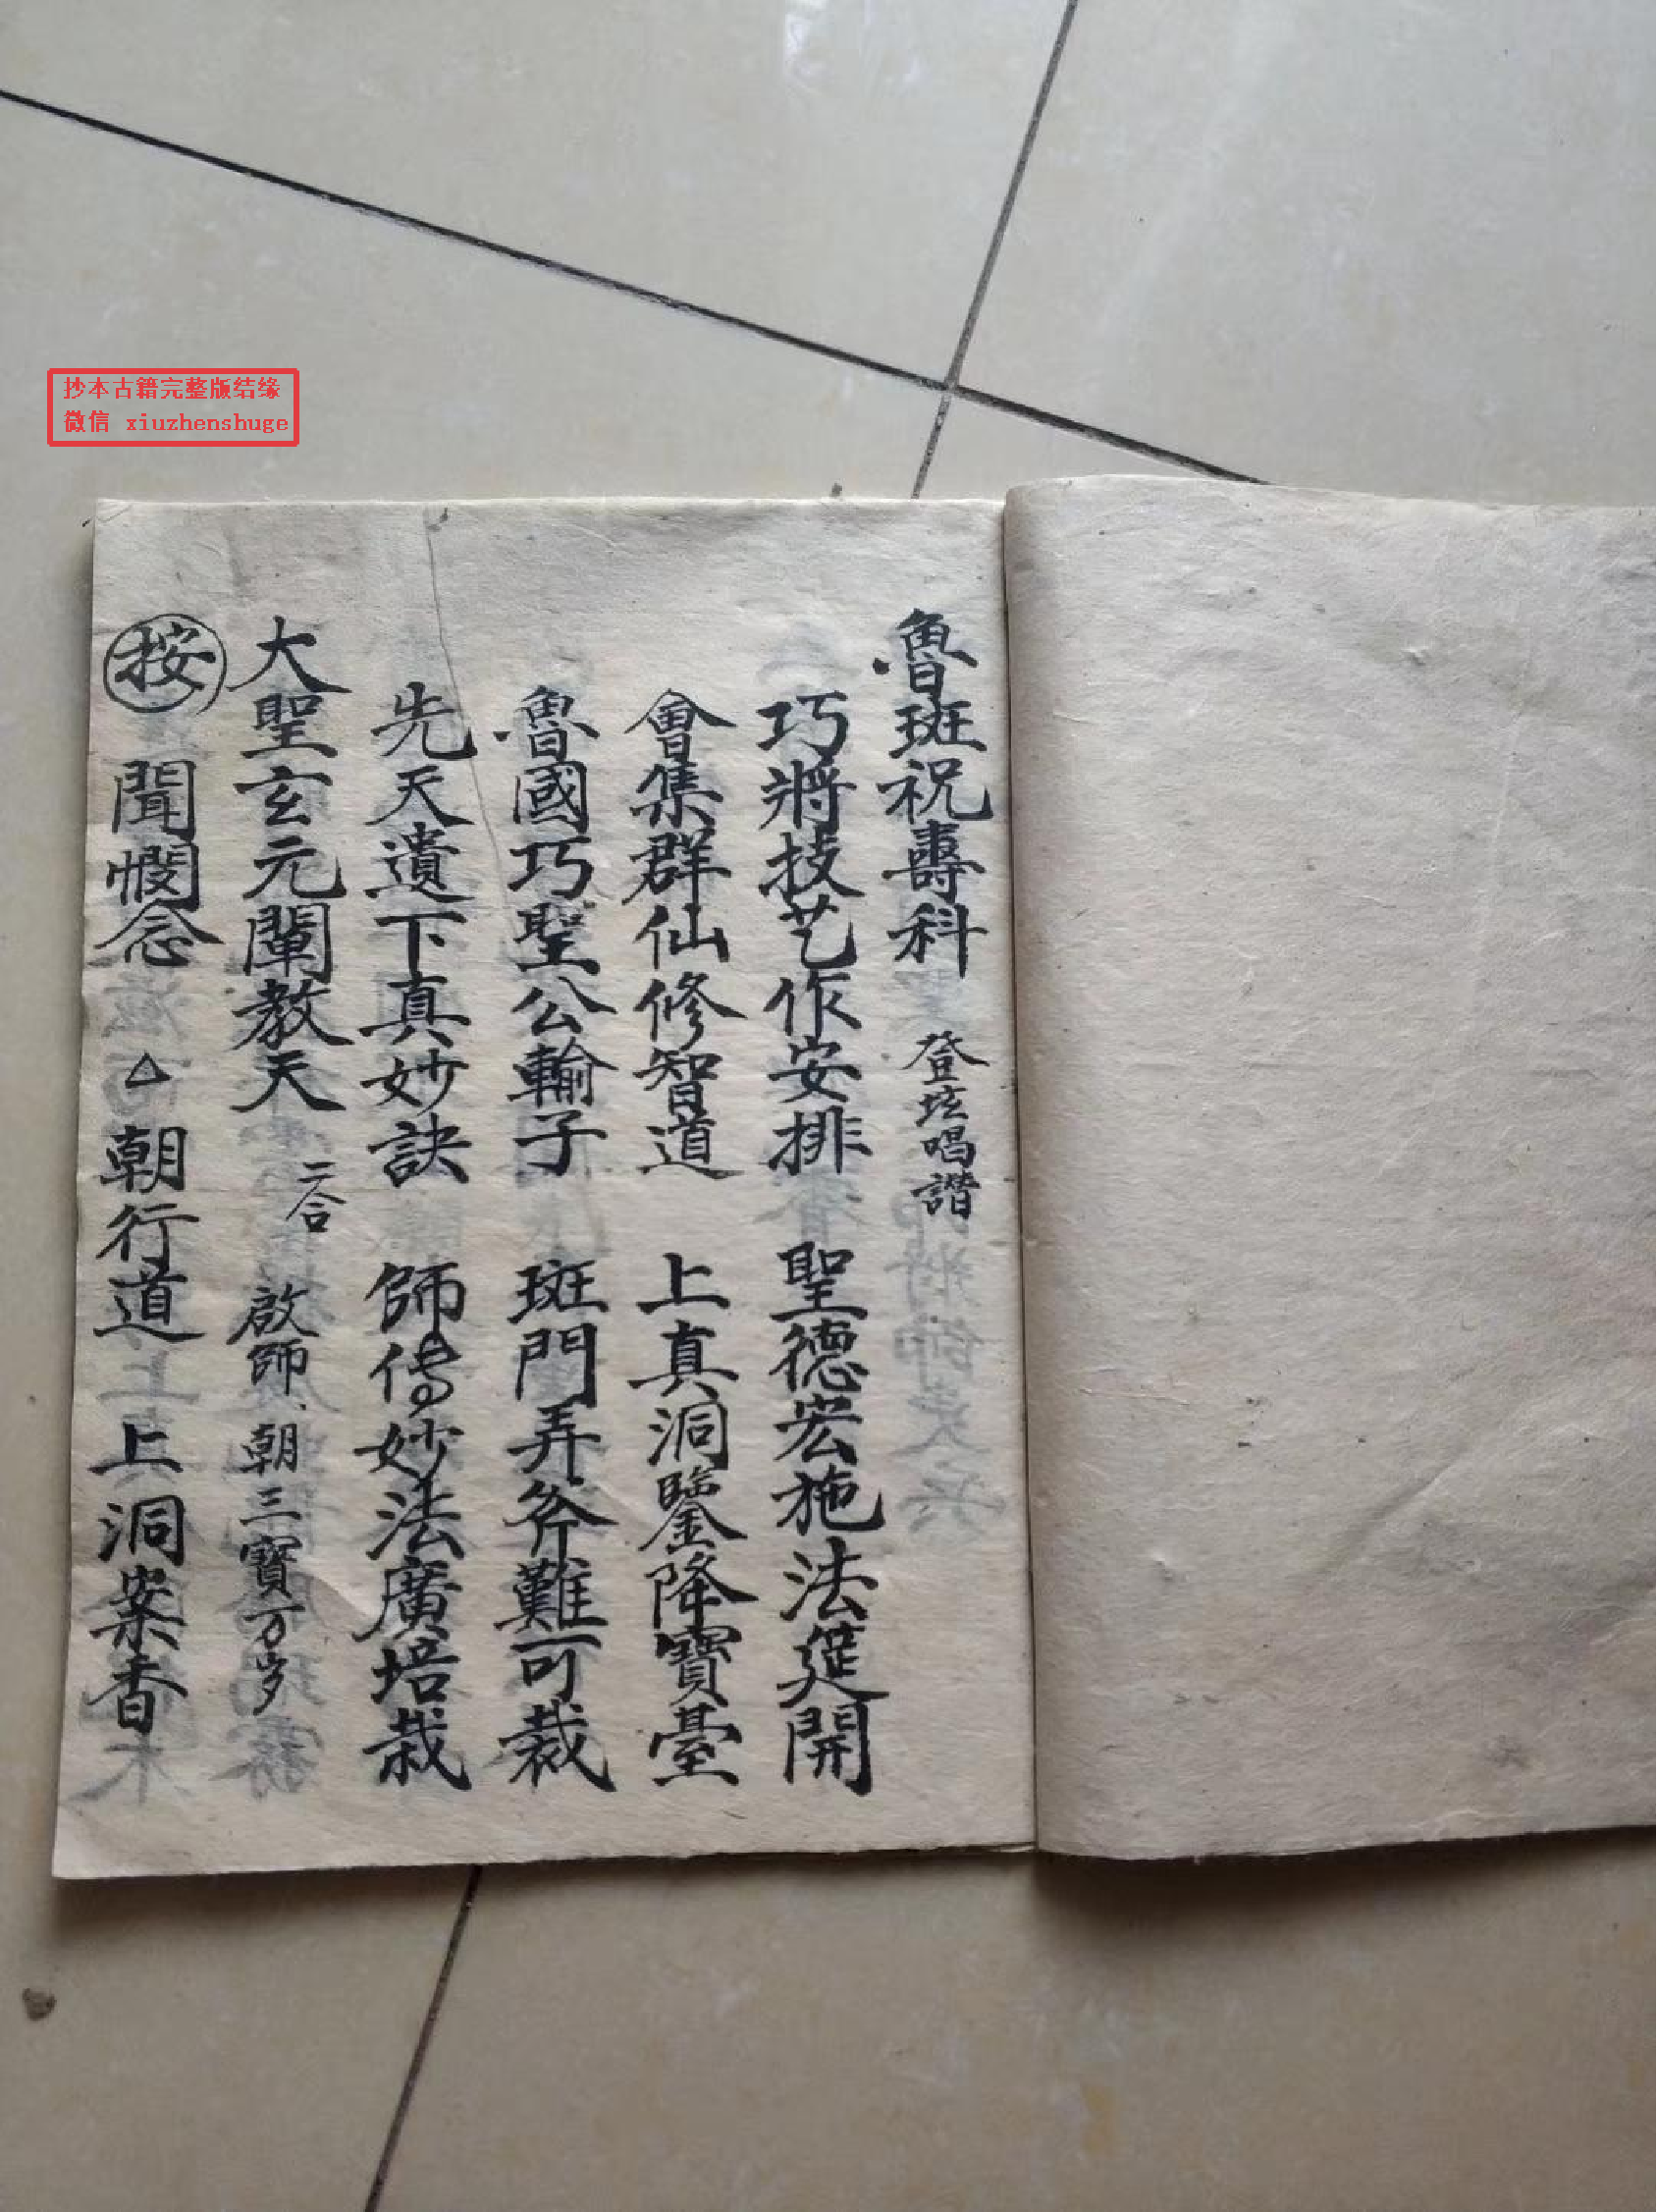 抄本古籍完整版结缘
微信 xiuzhenshuge
魯班祝壽科 登坛唱諧
巧將技艺作安排 聖德宏施法筵開
會集群仙修智道 上真洞鑒降寶臺
魯國巧聖公輸子 班門弄斧難可裁
先天遺下真妙訣 師傳妙法廣培栽
大聖玄元闡教天 二合 啟師、朝三寶万岁
按 聞憫念 △ 朝行道 上洞案香